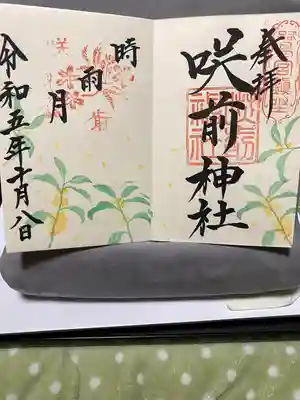 奉拝
咲前神社
時雨月
令和五年十月八日